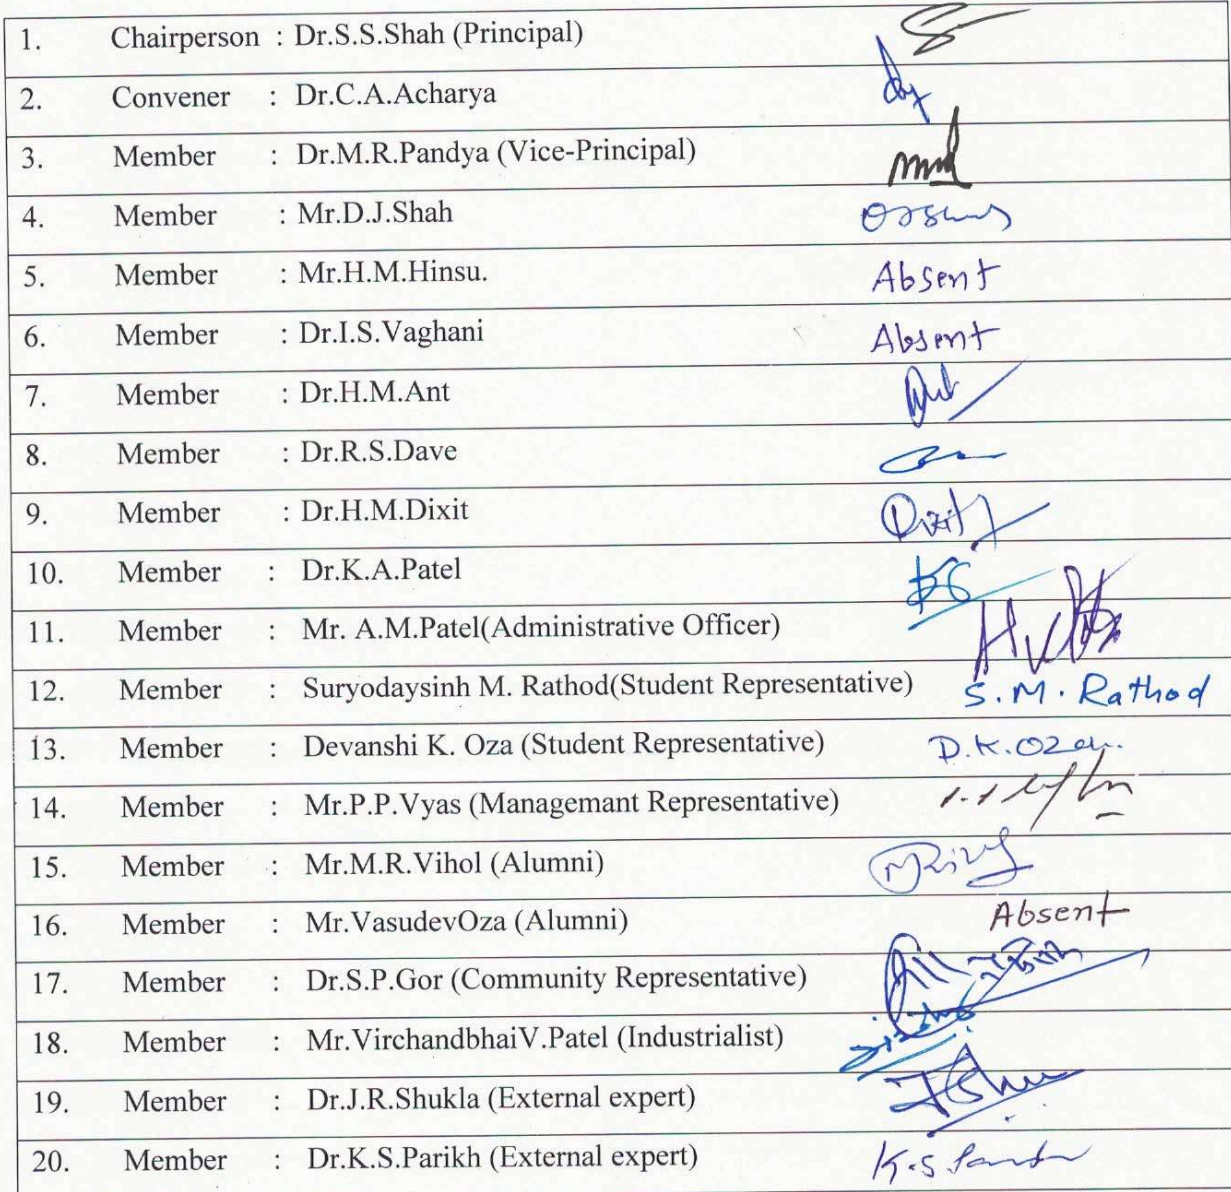 1. Chairperson : Dr.S.S.Shah (Principal)
2. Convener : Dr.C.A.Acharya
3. Member : Dr.M.R.Pandya (Vice-Principal)
4. Member : Mr.D.J.Shah
5. Member : Mr.H.M.Hinsu. Absent
6. Member : Dr.I.S.Vaghani Absent
7. Member : Dr.H.M.Ant
8. Member : Dr.R.S.Dave
9. Member : Dr.H.M.Dixit Dixit
10. Member : Dr.K.A.Patel
11. Member : Mr. A.M.Patel(Administrative Officer)
12. Member : Suryodaysinh M. Rathod(Student Representative) S.M. Rathod
13. Member : Devanshi K. Oza (Student Representative) D.K.Oza
14. Member : Mr.P.P.Vyas (Managemant Representative)
15. Member : Mr.M.R.Vihol (Alumni)
16. Member : Mr.VasudevOza (Alumni) Absent
17. Member : Dr.S.P.Gor (Community Representative)
18. Member : Mr.VirchandbhaiV.Patel (Industrialist)
19. Member : Dr.J.R.Shukla (External expert)
20. Member : Dr.K.S.Parikh (External expert)